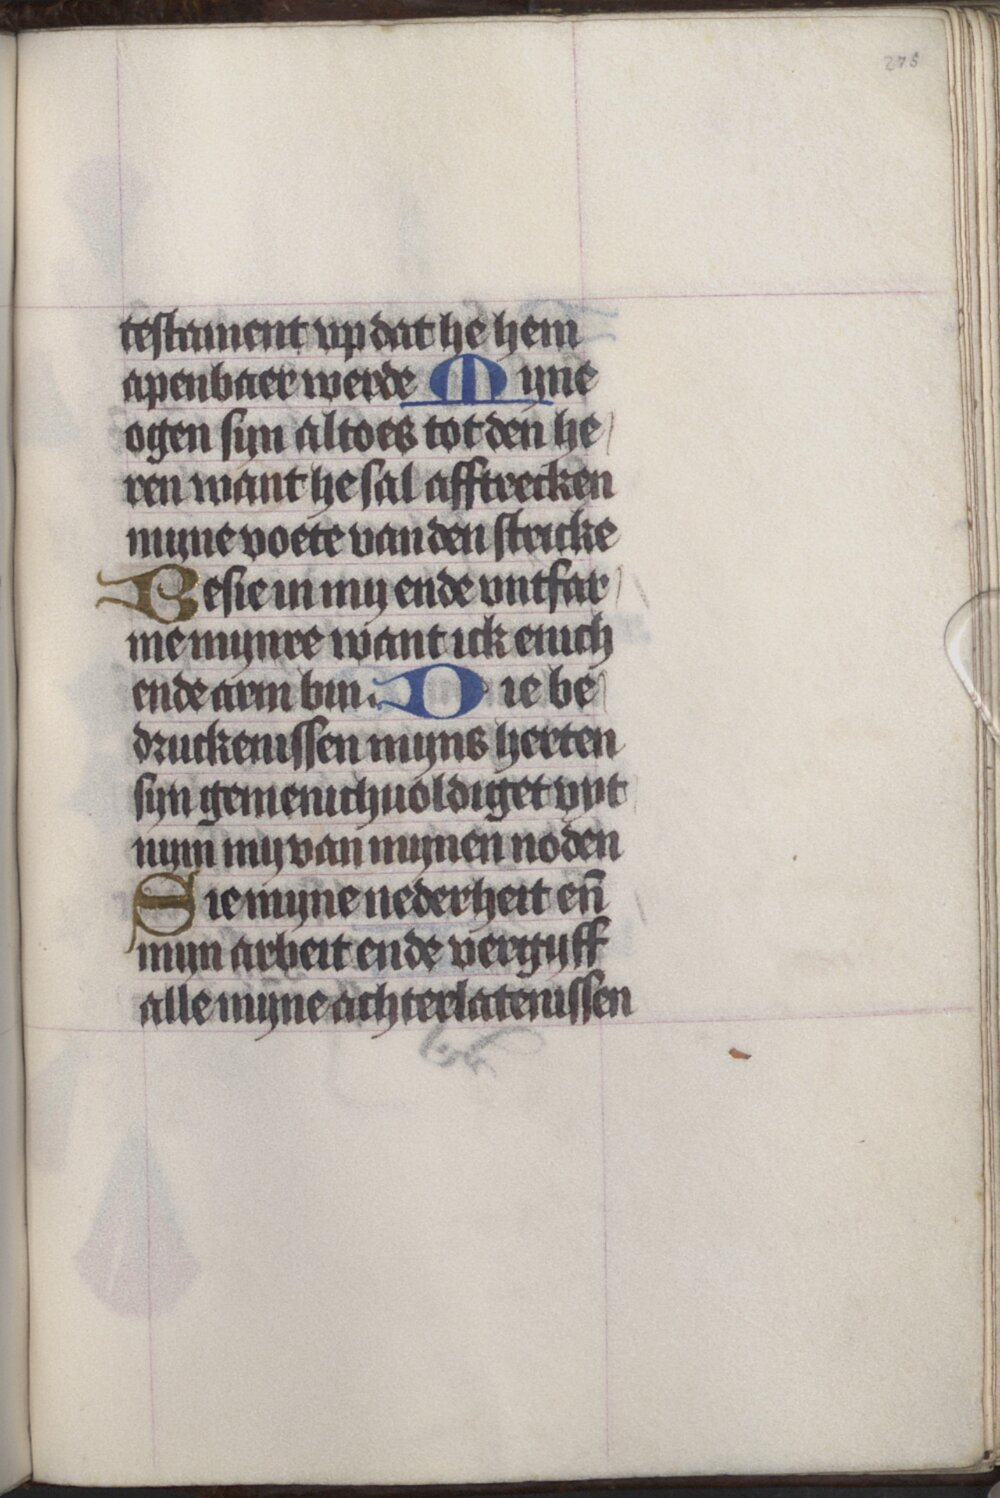 275
testament up dat he hem
apenbaer werde Myne
ogen syn altoes tot den he/
ren want he sal afftrecken
myne voete van den stricke
Besie in my ende untfar/
me mynre want ick enich
ende arm bin. Die be/
druckenissen myns herten
syn gemenichuoldiget vyt
nym my van mynen noden
Sie myne nederheit en̄
myn arbeit ende vergyff
alle myne achterlatenissen